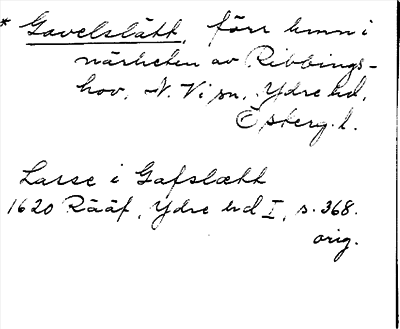 * Gavelslätt, förr hmn i
närheten av Ribbings-
hov, N. Vi sn, Ydre hd,
Österg. l.
Lasse i Gafslætt
1620 Rääf, Ydre hd I, s. 368.
orig.